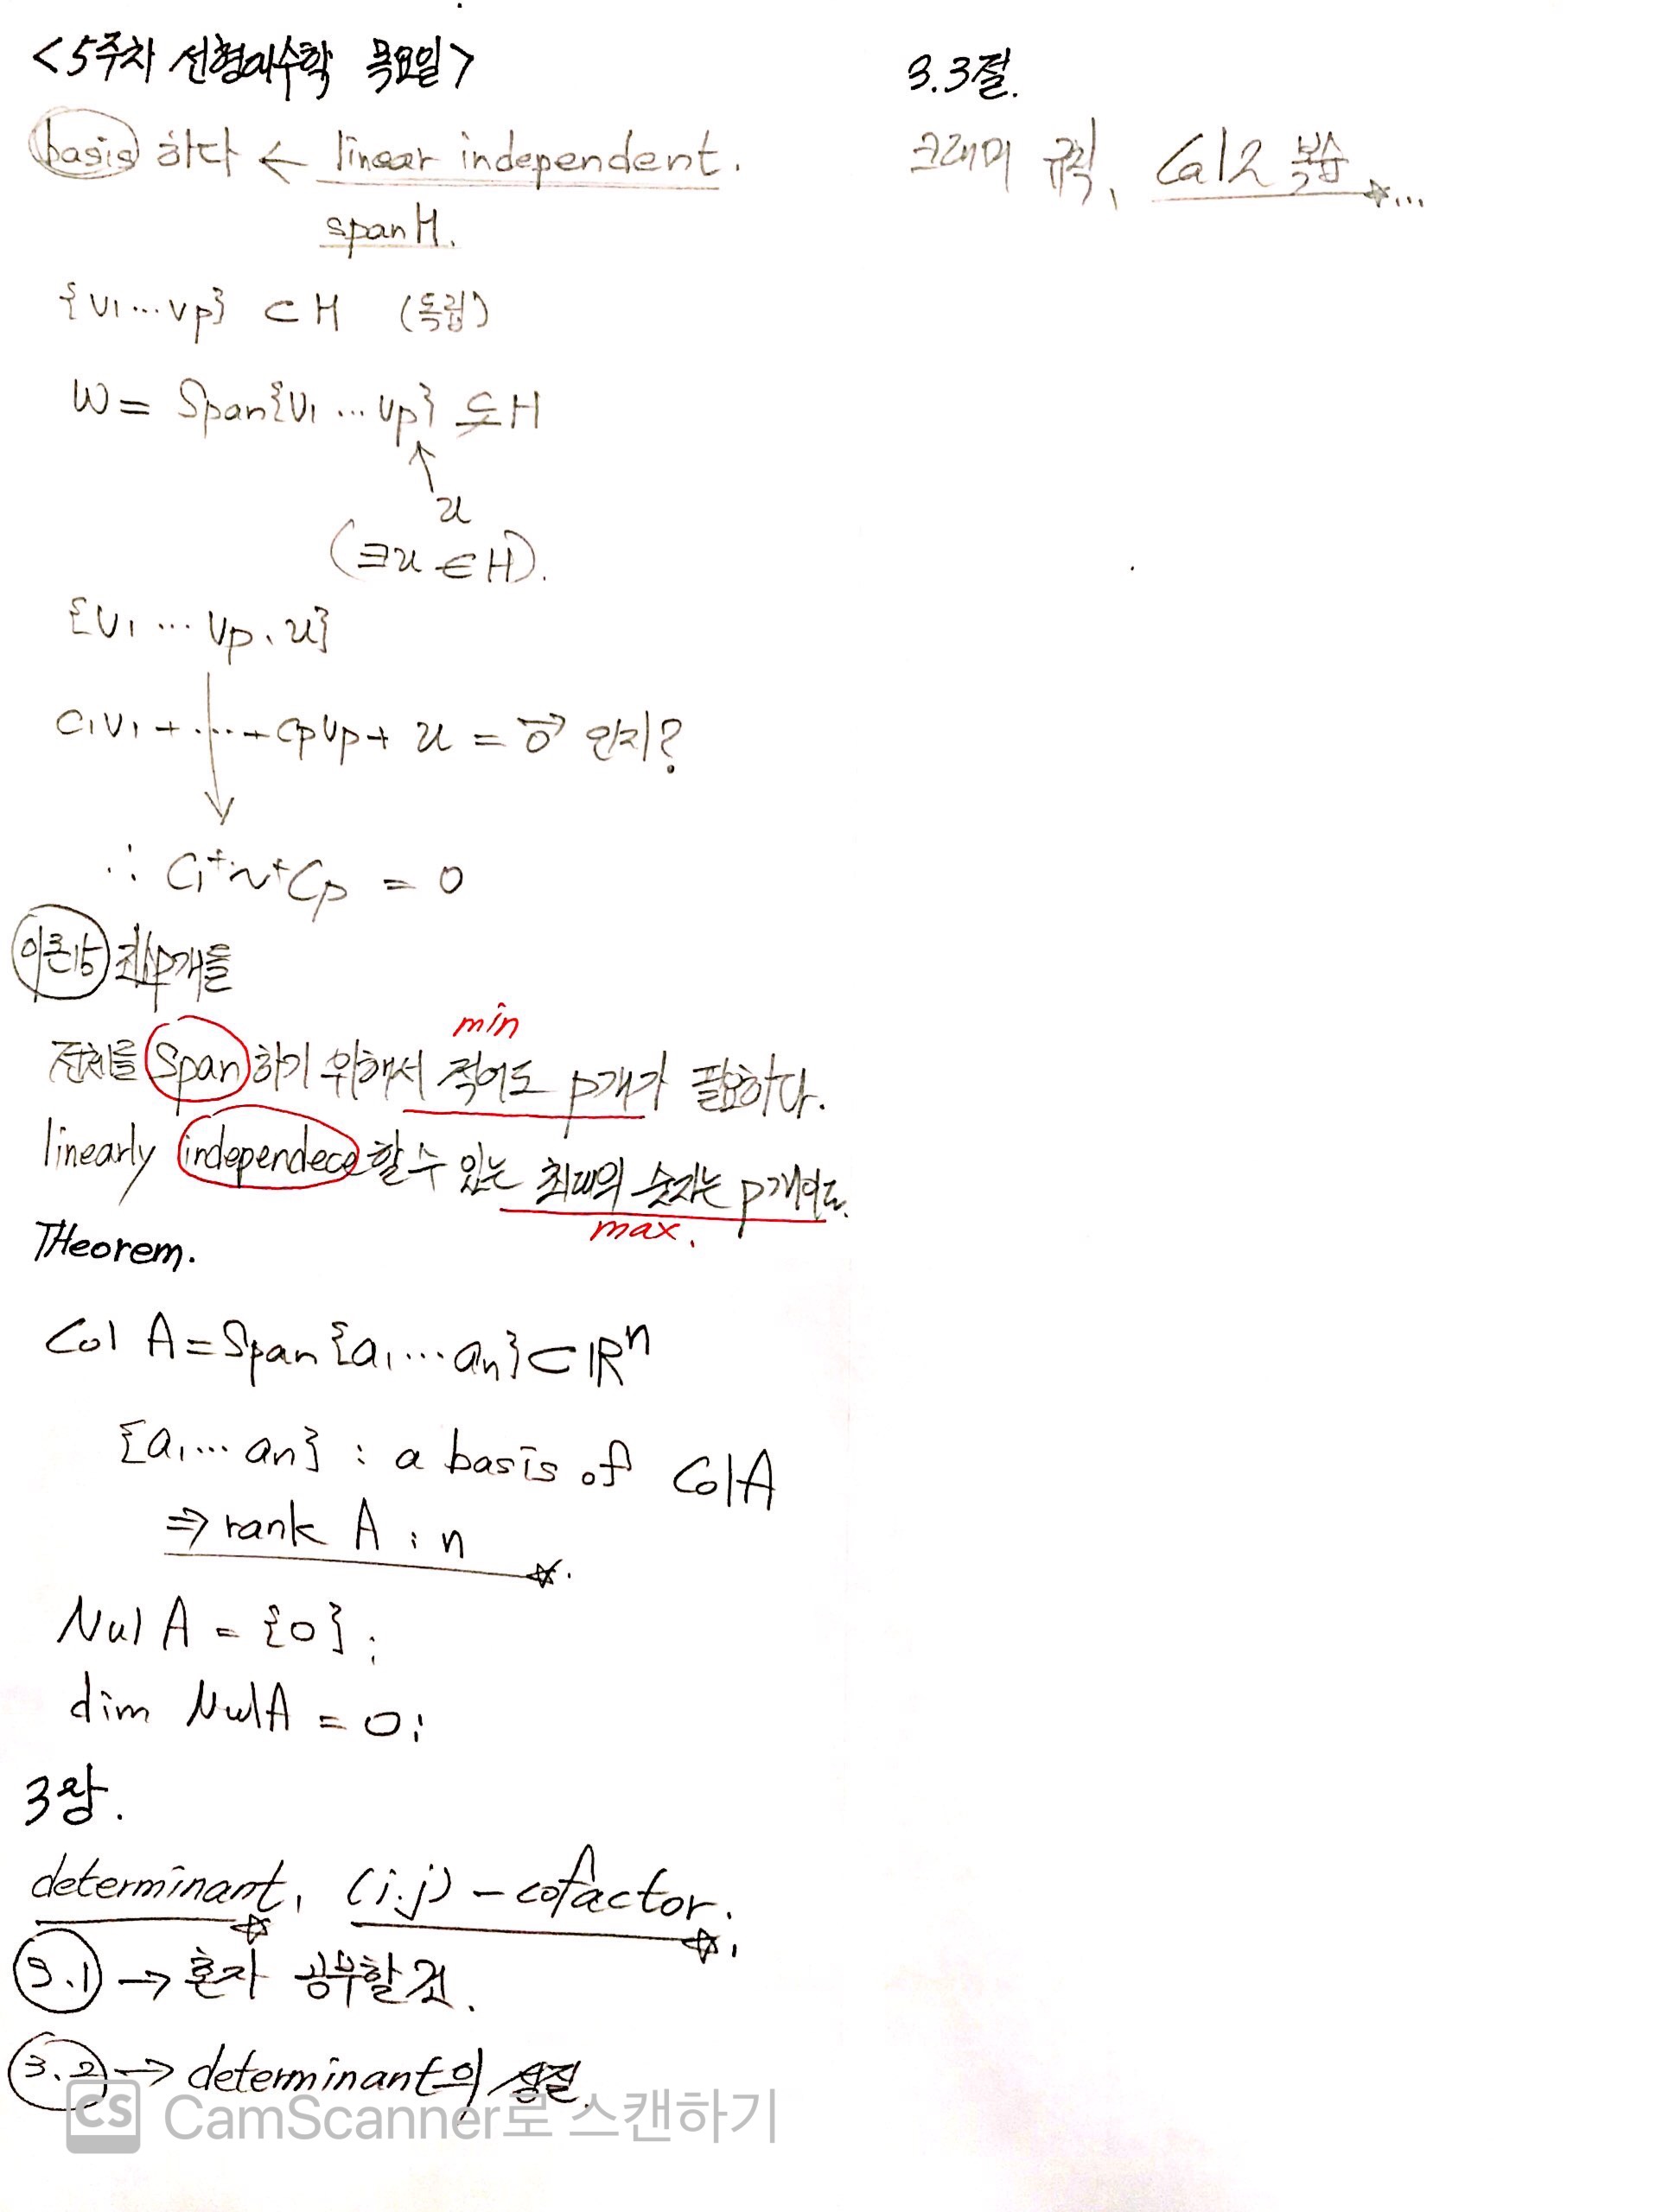 <5주차 선형대수학 목요일>
basis 하다 ← linear independent.
span H.
{v1 ... vp} ⊂ H (독립)
W = Span{v1 ... vp} ⊊ H
↑
u
(∃u ∈ H).
{v1 ... vp, u}
c1v1 + ... + cpvp + u = 0 인지?
∴ c1+~+cp = 0
p개를
전체를 Span 하기 위해서 적어도 p개가 필요하다.
min
linearly independece 할 수 있는 최대의 숫자는 p개이다.
max.
THeorem.
Col A = Span {a1 ... an} ⊂ ℝn
{a1 ... an} : a basis of Col A
⇒ rank A : n
☆.
Nul A = {0};
dim Nul A = 0;
3장.
determinant, (i.j) - cofactor.
☆ ☆.
3.1 → 혼자 공부할 것.
3.2 → determinant의 성질.
3.3절.
크래머 규칙, Cal2 복습
☆...
CS CamScanner로 스캔하기